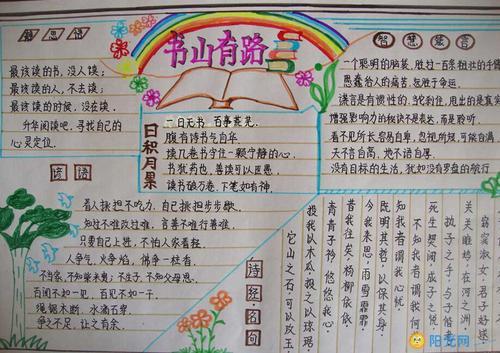 书山有路
最该读的书,没人读;
最该读的人,不去读;
最该读的时候,没在读;
升华阅读吧,寻找自己的
心灵定位。
智慧箴言
一个聪明的脑袋,胜过一百条粗壮的手臂
愚蠢给人的痛苦,甚于命运。
谎言是有惯性的,
增强影响力的秘诀不是表达,而是聆听。
看不见所长,容易自卑,忽视所短,可能自满
天不言自高,地不语自厚。
没有目标的生活,犹如没有罗盘的航行
日积月累
一日无书 百事荒芜.
腹有诗书气自华
读几卷书守住一颗宁静的心.
书犹药也,善读可以医愚.
读书破万卷,下笔如有神.
看人挑担不吃力,自己挑担步步歇.
知过不难改过难,言善不难行善难.
只要自己上进,不怕人家看轻.
人争气,火争焰,佛争一柱香.
不当家,不知柴米贵;不生子,不知父母恩.
百闻不如一见,百见不如一干.
绳锯木断,水滴石穿.
争之不足,让之有余.
诗经·名句
窈窕淑女,君子好逑
关关雎鸠,在河之洲
执子之手,与子偕老
死生契阔,与子成说
不知我者谓我何求
知我者谓我心忧
既明且哲,以保其身
今我来思,雨雪霏霏
昔我往矣,杨柳依依
青青子衿,悠悠我心
投我以木瓜,报之以琼琚
它山之石,可以攻玉
阳光网